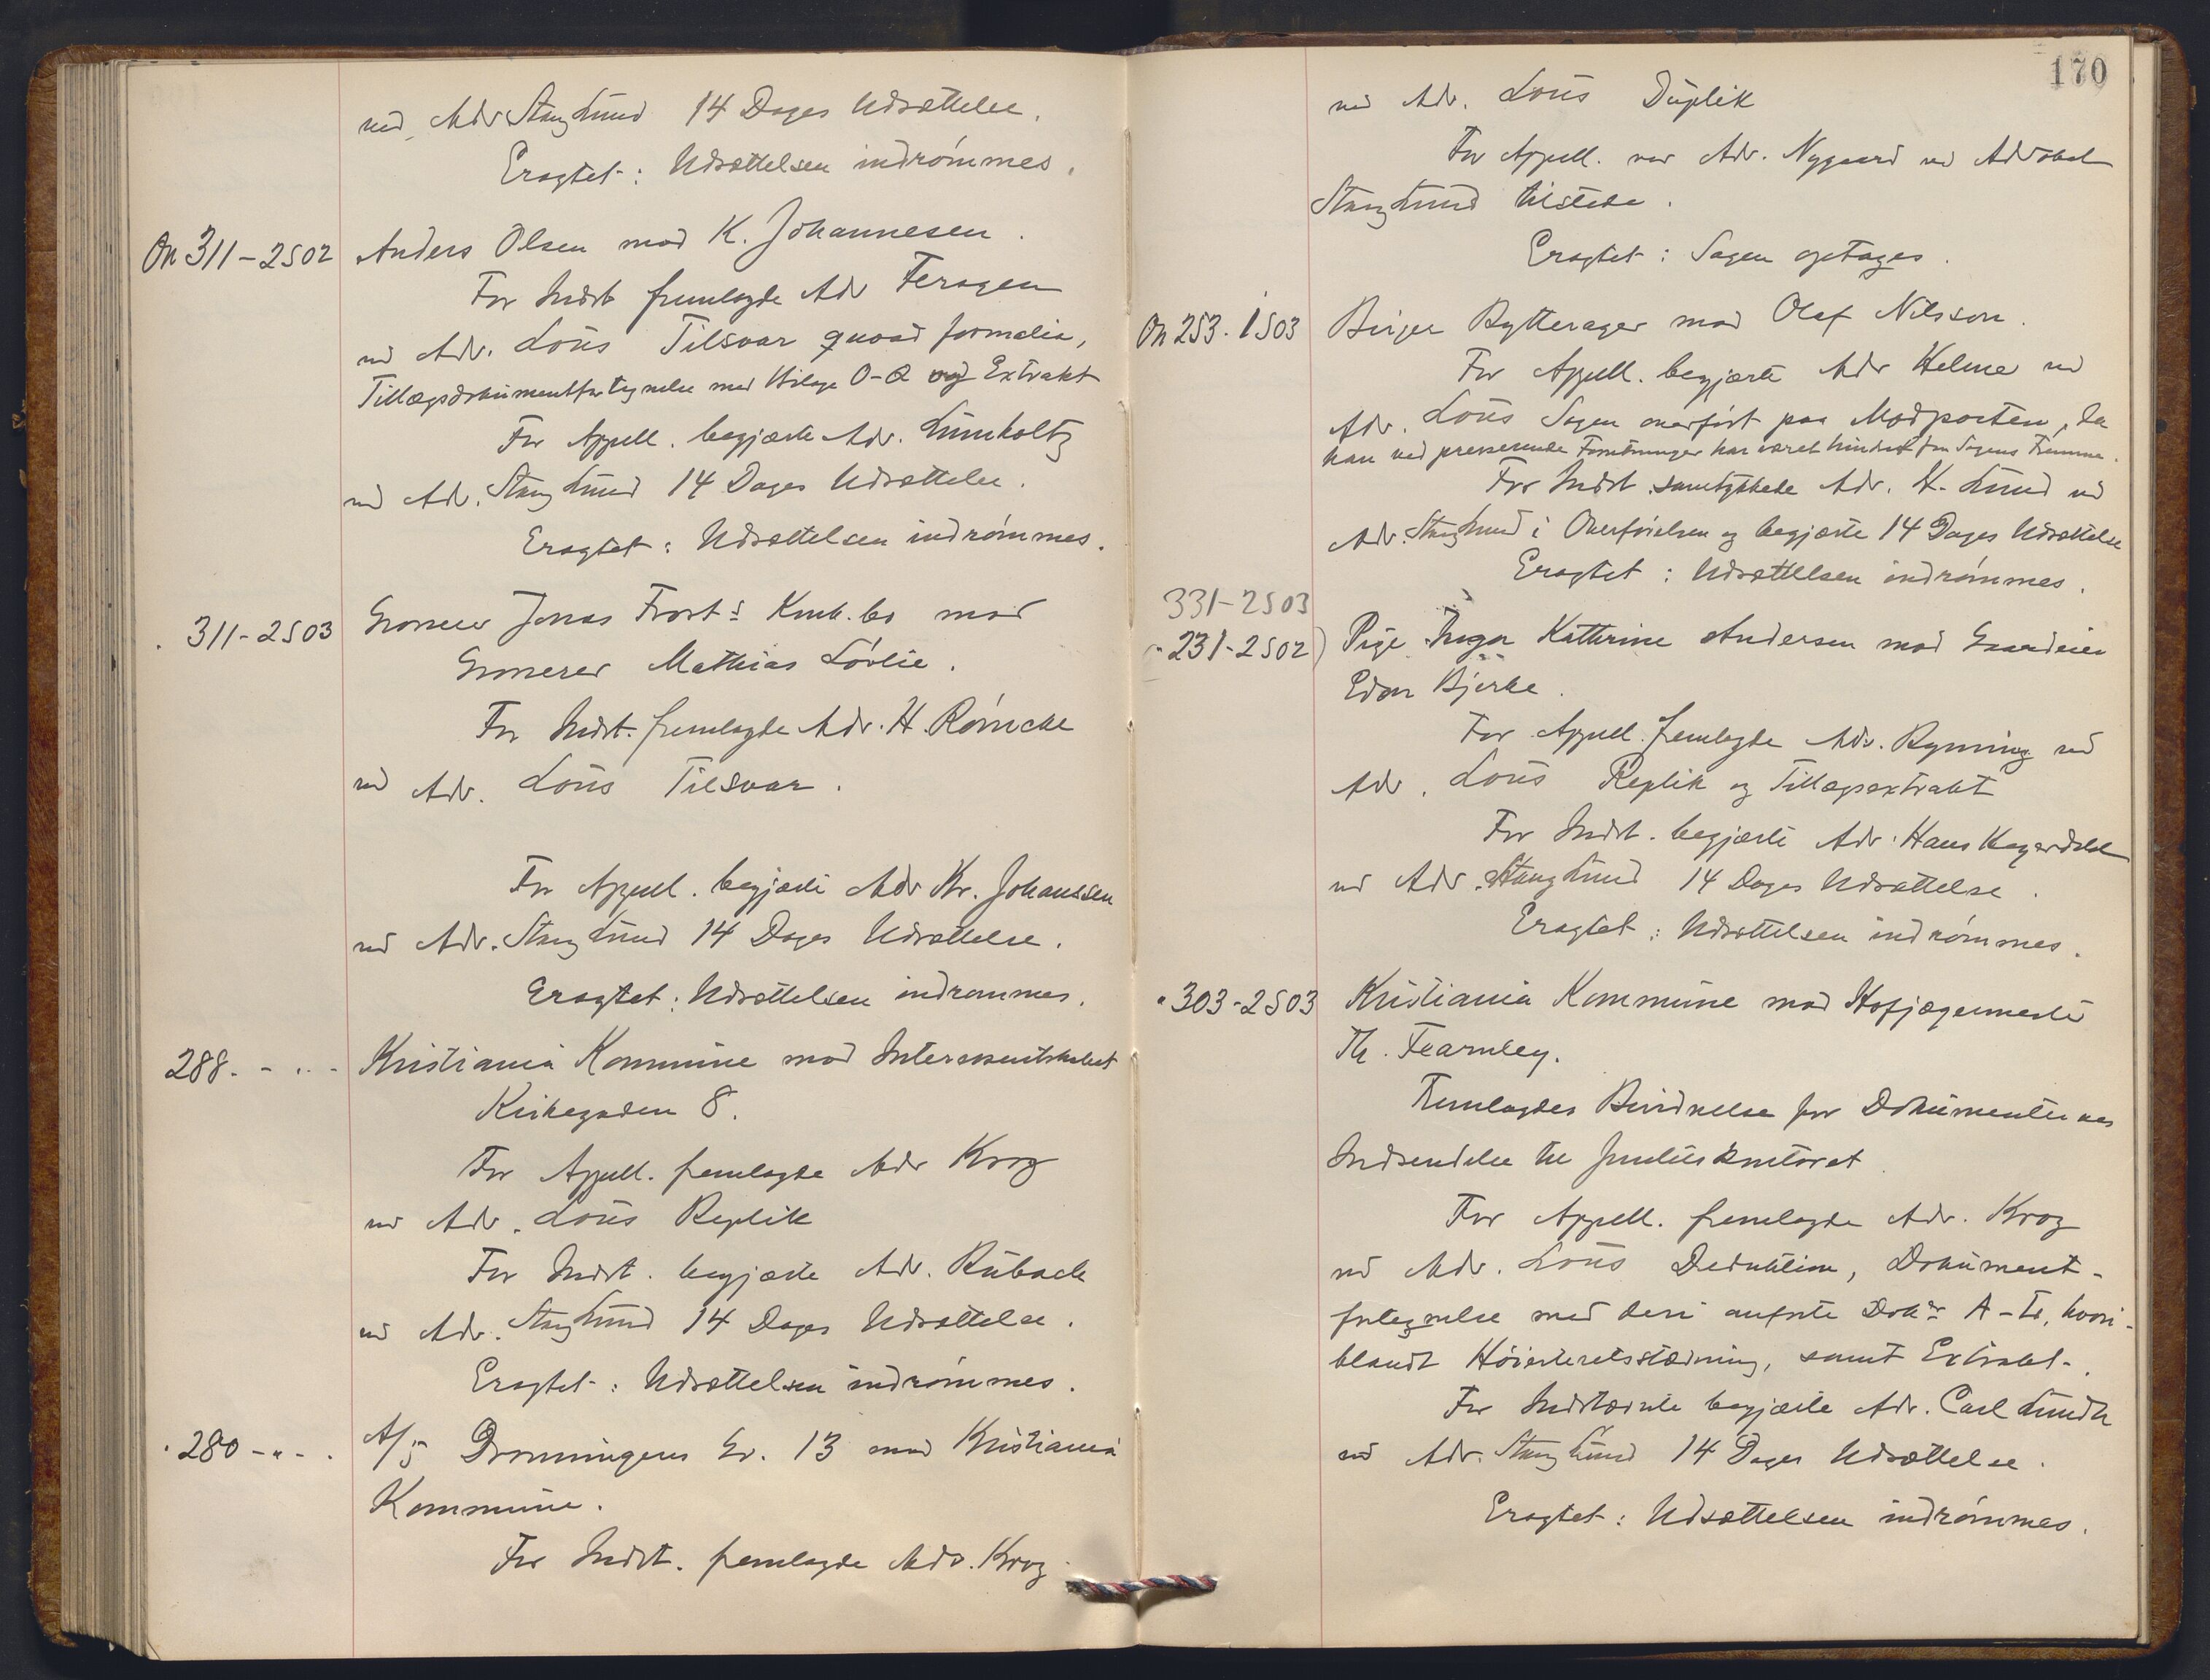 ved Adv Stang Lund 14 Dages Udsættelse.
Eragtet: Udsættelsen indrømmes.
On 311-2502 Anders Olsen mod K. Johannesen.
For Indst fremlagde Adv Feragen
ved Adv. Lous Tilsvar quoad formalia,
Tillægsdokumentfortegnelse med Bilage O-Q og Extrakt
For Appell. begjærte Adv. Lumholtz
ved Adv. Stang Lund 14 Dages Udsættelse.
Eragtet: Udsættelsen indrømmes.
311-2503 Grosserer Jonas Frost's Konk.bo mod
Grosserer Mathias Løvlie.
For Indst. fremlagde Adv. H. Römcke
ved Adv. Lous Tilsvar.
For Appell. begjærte Adv Kr. Johanssen
ved Adv. Stang Lund 14 Dages Udsættelse.
Eragtet: Udsættelsen indrømmes.
288. - " - Kristiania Kommune mod Interessentskabet
Kirkegaden 8.
For Appell. fremlagde Adv Krog
ved Adv. Lous Replik
For Indst. begjærte Adv. Rubach
ved Adv. Stang Lund 14 Dages Udsættelse.
Eragtet: Udsættelsen indrømmes.
280 - " - A/S Dronningens Gr. 13 mod Kristiania
Kommune.
For Indst. fremlagde Adv. Krog
170
ved Adv. Lous Duplik
For Appell. var Adv. Nygaard ved Advokat
Stang Lund tilstede.
Eragtet: Sagen optages.
On 253. 1503 Birger Rytterager mod Olaf Nilsson.
For Appell. begjærte Adv Helmer ved
Adv. Lous Sagen overført paa Modparten, da
han ved presserende Forretninger har været hindret fra Sagens Fremme.
For Indst. samtykkede Adv. K. Lund ved
Adv. Stang Lund i Overførelsen og begjærte 14 Dages Udsættelse
Eragtet: Udsættelsen indrømmes.
331-2503
231-2502) Pige Inga Kathrine Andersen mod Gaardeier
Edvr Bjerke.
For Appell. fremlagde Adv. Ryning ved
Adv. Lous Replik og Tillægsextrakt
For Indst. begjærte Adv. Hans
ved Adv. Stang Lund 14 Dages Udsættelse.
Eragtet: Udsættelsen indrømmes.
" 303-2503 Kristiania Kommune mod Hofjægermester
Th. Fearnley.
Fremlagdes Bevidnelse for Dokumenternes
Indsendelse til Justitskontoret.
For Appell. fremlagde Adv. Krog
ved Adv. Lous Deduktion, Dokument-
fortegnelse med deri anførte Dokr A - , hvori-
blandt Høiesteretsstævning, samt Extrakt.
For Indstævnte begjærte Adv. Carl Lundh
ved Adv. Stang Lund 14 Dages Udsættelse.
Eragtet: Udsættelsen indrømmes.